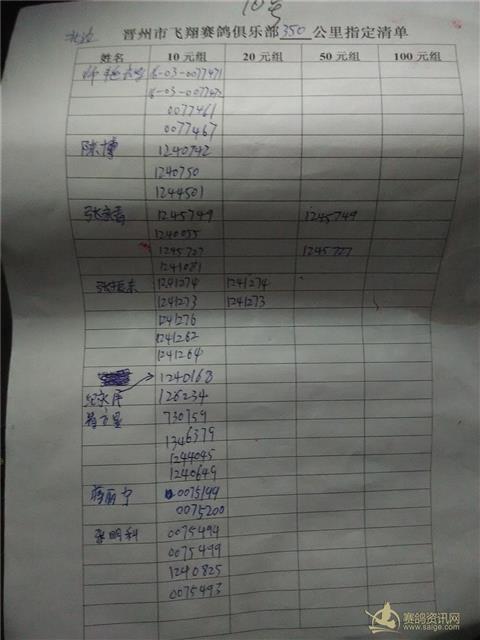 10号
晋州市飞翔赛鸽俱乐部350公里指定清单
姓名 10元组 20元组 50元组 100元组
16-03-0077471
16-03-0077472
0077461
0077467
陈博 1240742
1240750
1244501
1245749 1245749
1240055
1245727 1245727
1241081
张振东 1241274 1241274
1241273 1241273
1241276
1241262
1241264
1240168
126234
730759
1346379
1244045
1240649
蒋丽宁 0075199
0075200
张明科 0075494
0075499
1240825
0075493
赛鸽资讯网
www.saige.com